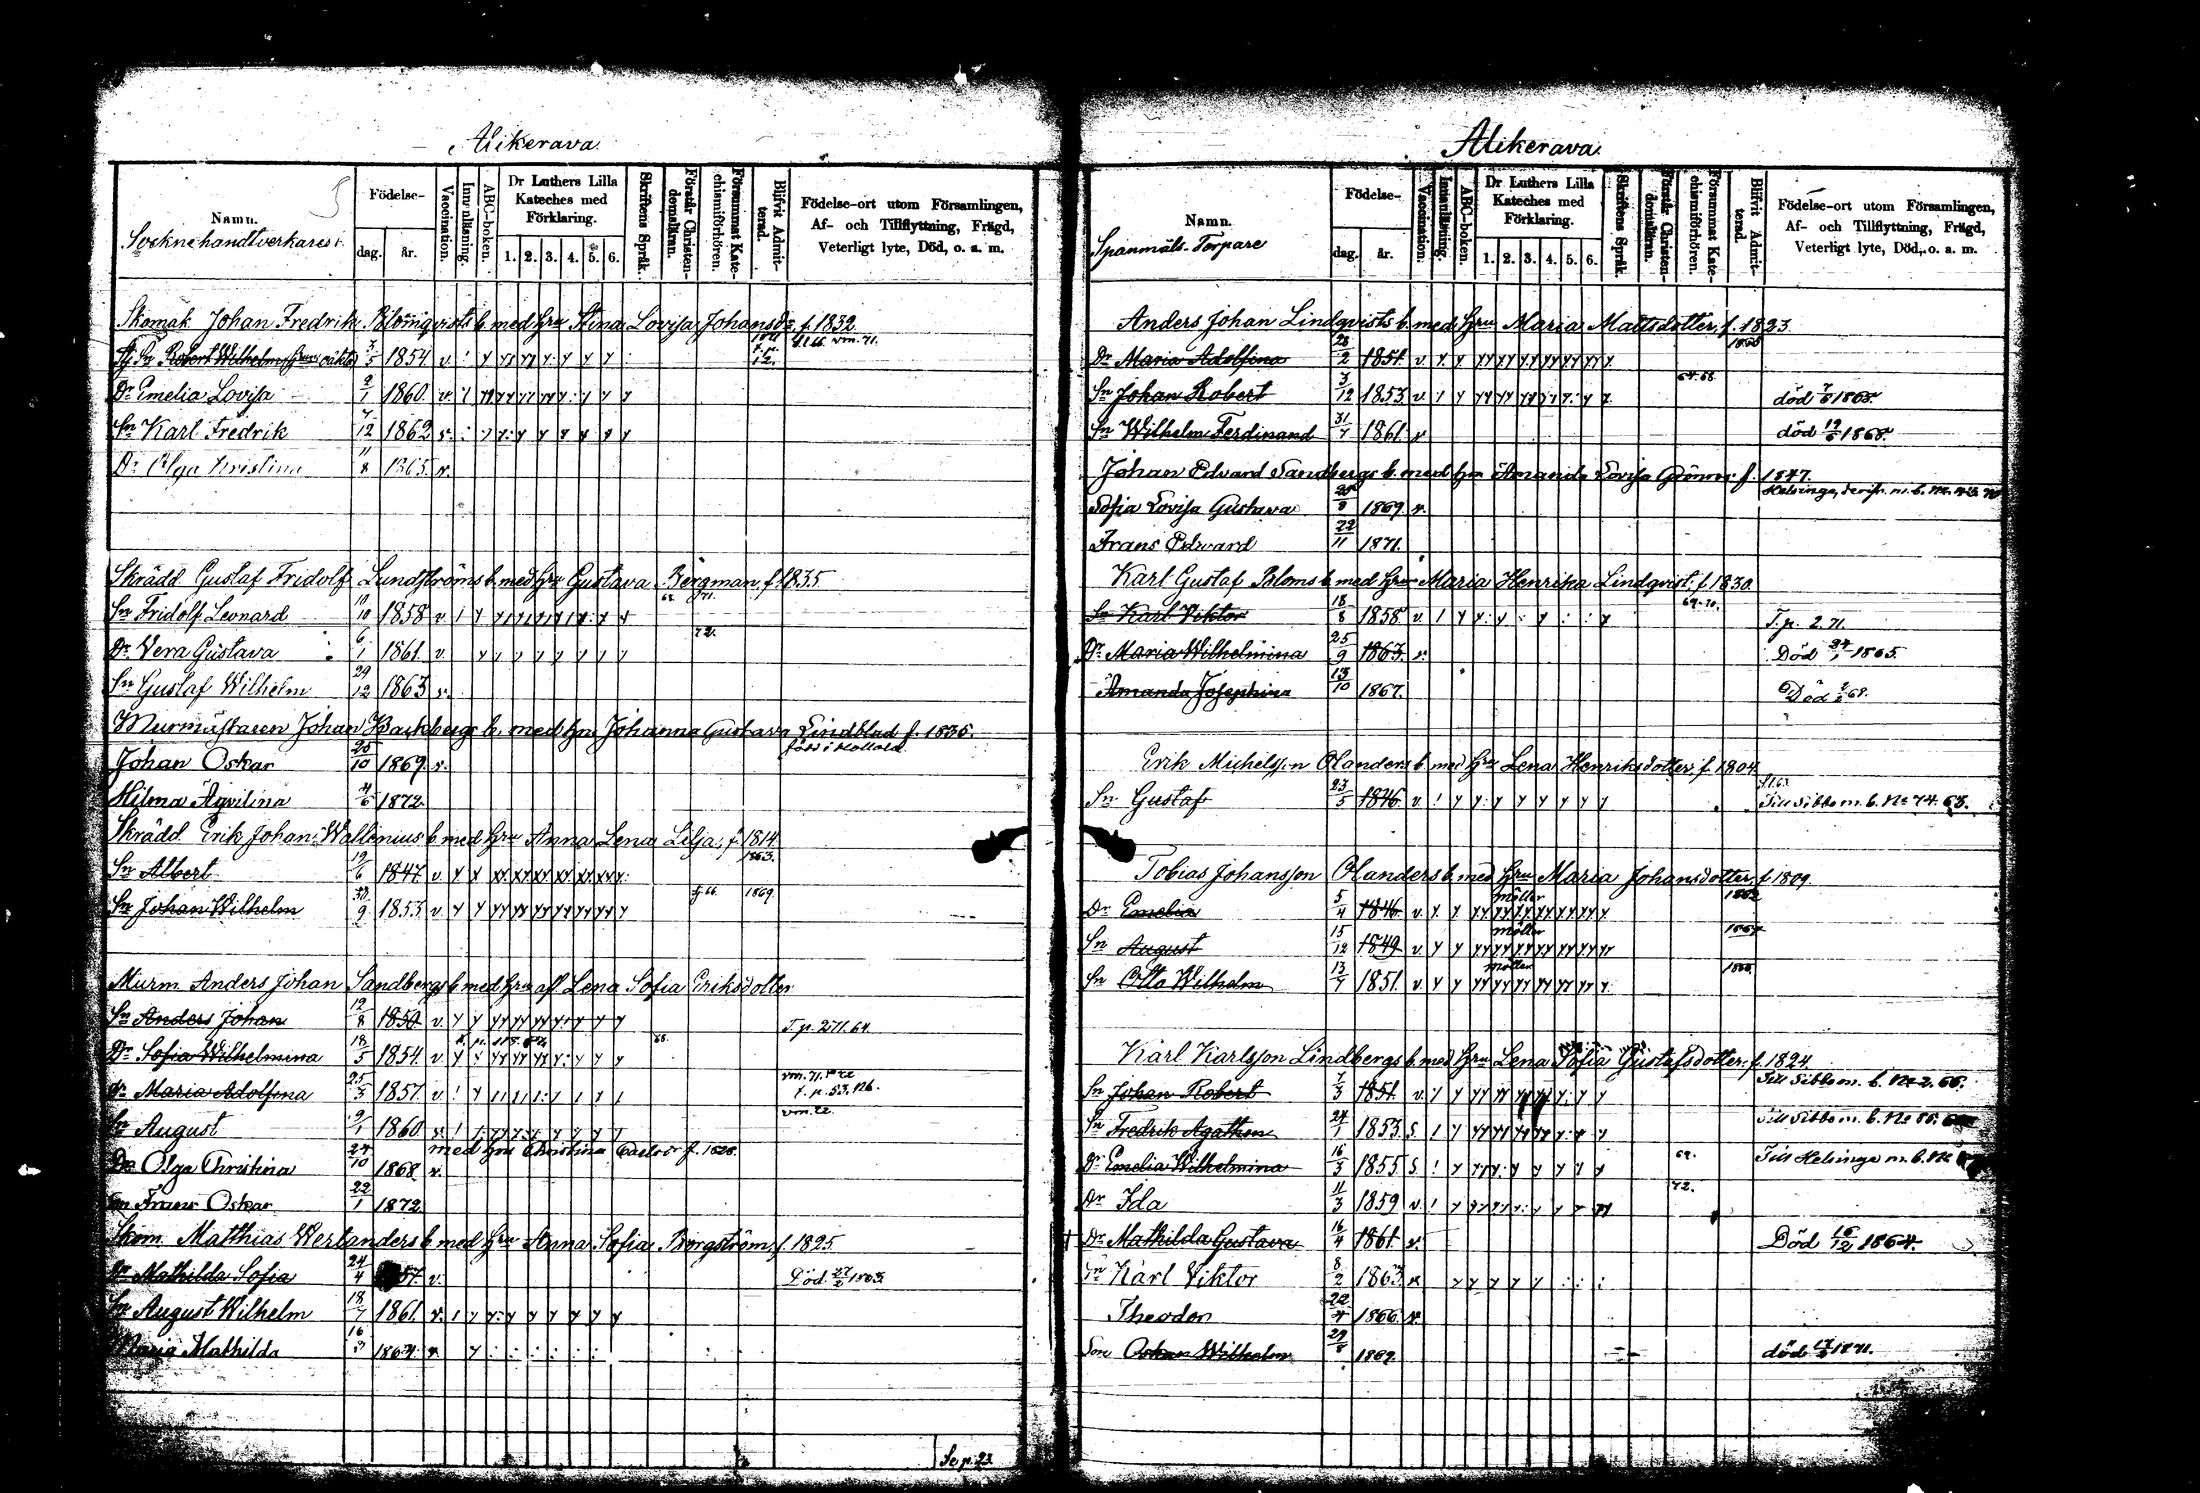 Alikerava.
Namn.
Socknehandtverkares
Födelse-
dag.
år.
Vaccination.
Innanläsning.
ABC-boken.
Dr Luthers Lilla Kateches med Förklaring.
1. 2. 3. 4. 5. 6.
Skriftens Språk.
Förstår Christendomsläran.
Försummat Katechismiförhören.
Blifvit Admitterad.
Födelse-ort utom Församlingen, Af- och Tillflyttning, Frägd, Veterligt lyte, Död, o. s. m.
Skomak. Johan Fredrik Blomqvists b. med hru Stina Lovisa Johansdr f. 1832.
Robert Wilhelm 3/5 1854 v.
Dr Emelia Lovisa 2/1 1860. v.
Sn Karl Fredrik 7/12 1862 v.
Dr Olga Kristina 11/8 1865. v.
Skrädd Gustaf Fridolf Lundströms b. med hru Gustava Bergman, f. 1835
Sn Fridolf Leonard 10/10 1858 v.
72.
Dr Vera Gustava 6/1 1861. v.
Sn Gustaf Wilhelm 29/12 1863 v.
Murmästaren Johan Backbergs b. med hru Johanna Gustava Lindblad f. 1835.
Johan Oskar 25/10 1869. v.
Hilma Aqvilina 4/6 1872.
Skrädd Erik Johan Wallenius b. med hru Anna Lena Lilja, f. 1814
1863.
Sn Albert 19/6 1847. v.
Sn Johan Wilhelm 30/9 1853 v. 66 1869.
Murm. Anders Johan Sandbergs b. med hru afl. Lena Sofia Eriksdotter
Sn Anders Johan 12/8 1850 v. T. p. 271. 64.
Dr Sofia Wilhelmina 18/5 1854. v. 68.
Dr Maria Adolfina 25/3 1857. v. t. p. 53. 126.
Sn August 9/1 1860
med hru Christina f. 1828.
Dr Olga Christina 24/10 1868 v.
Sn Frans Oskar 22/1 1872.
Skom. Matthias Werlanders b. med hru Anna Sofia Borgström, f. 1825.
Dr Mathilda Sofia 24/4 v. Död
Sn August Wilhelm 18/7 1861. v.
Maria Mathilda 16/3 1864. v.
Se p. 23
Alikerava.
Namn.
Spanmåls-Torpare
Födelse-
dag.
år.
Vaccination.
Innanläsning.
ABC-boken.
Dr Luthers Lilla Kateches med Förklaring.
1. 2. 3. 4. 5. 6.
Skriftens Språk.
Förstår Christendomsläran.
Försummat Katechismiförhören.
Blifvit Admitterad.
Födelse-ort utom Församlingen, Af- och Tillflyttning, Frägd, Veterligt lyte, Död, o. s. m.
Anders Johan Lindqvists b. med hru Maria Mattsdotter, f. 1823.
Dr Maria Adolfina 28/2 1851. v.
Sn Johan Robert 3/12 1853. v. 67. 68. död 7/6 1868.
Sn Wilhelm Ferdinand 31/7 1861. v. död 19/6 1868.
Johan Edvard Sandbergs b. med hru Amanda Lovisa Grönroos f. 1847.
Sofia Lovisa Gustava 25/8 1869. v.
Frans Edvard 22/11 1871.
Karl Gustaf Bloms b. med hru Maria Henrika Lindqvist, f. 1830.
69-70.
Sn Karl Viktor 18/8 1858. v. T. p. 2. 71.
Dr Maria Wilhelmina 25/9 1863. v. Död 24/1 1865.
Amanda Josephina 13/10 1867. Död 68.
Erik Michelsson Olanders b. med hru Lena Henriksdotter, f. 1804.
Sn Gustaf 23/5 1846 v. Till Sibbo m. b. No 74. 63.
Tobias Johansson Olanders b. med hru Maria Johansdotter, f. 1809.
Dr Emelia 5/4 1846 v. möller 1862
Sn August 15/12 1849 v. möller 1867
Sn Otto Wilhelm 13/7 1851. v. möller 1868.
Karl Karlsson Lindbergs b. med hru Lena Sofia Gustafsdotter, f. 1824.
Sn Johan Robert 7/3 1851. v. Till Sibbo m. b. No 2. 66.
Sn Fredrik Agathon 24/1 1853. S. Till Sibbo m. b. No 85.
Dr Emelia Wilhelmina 16/3 1855 S. 69. Till Helsinge m. b. No
Dr Ida 11/3 1859 v. 72.
Dr Mathilda Gustava 16/4 1861. v. Död 16/12 1864.
Sn Karl Viktor 8/2 1863. v.
Theodor 22/4 1866. v.
Son Oskar Wilhelm 29/8 1869. död 1871.